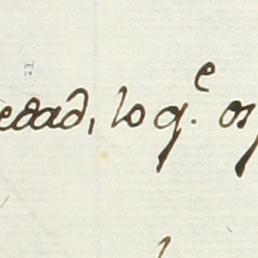 edad, lo q.e os